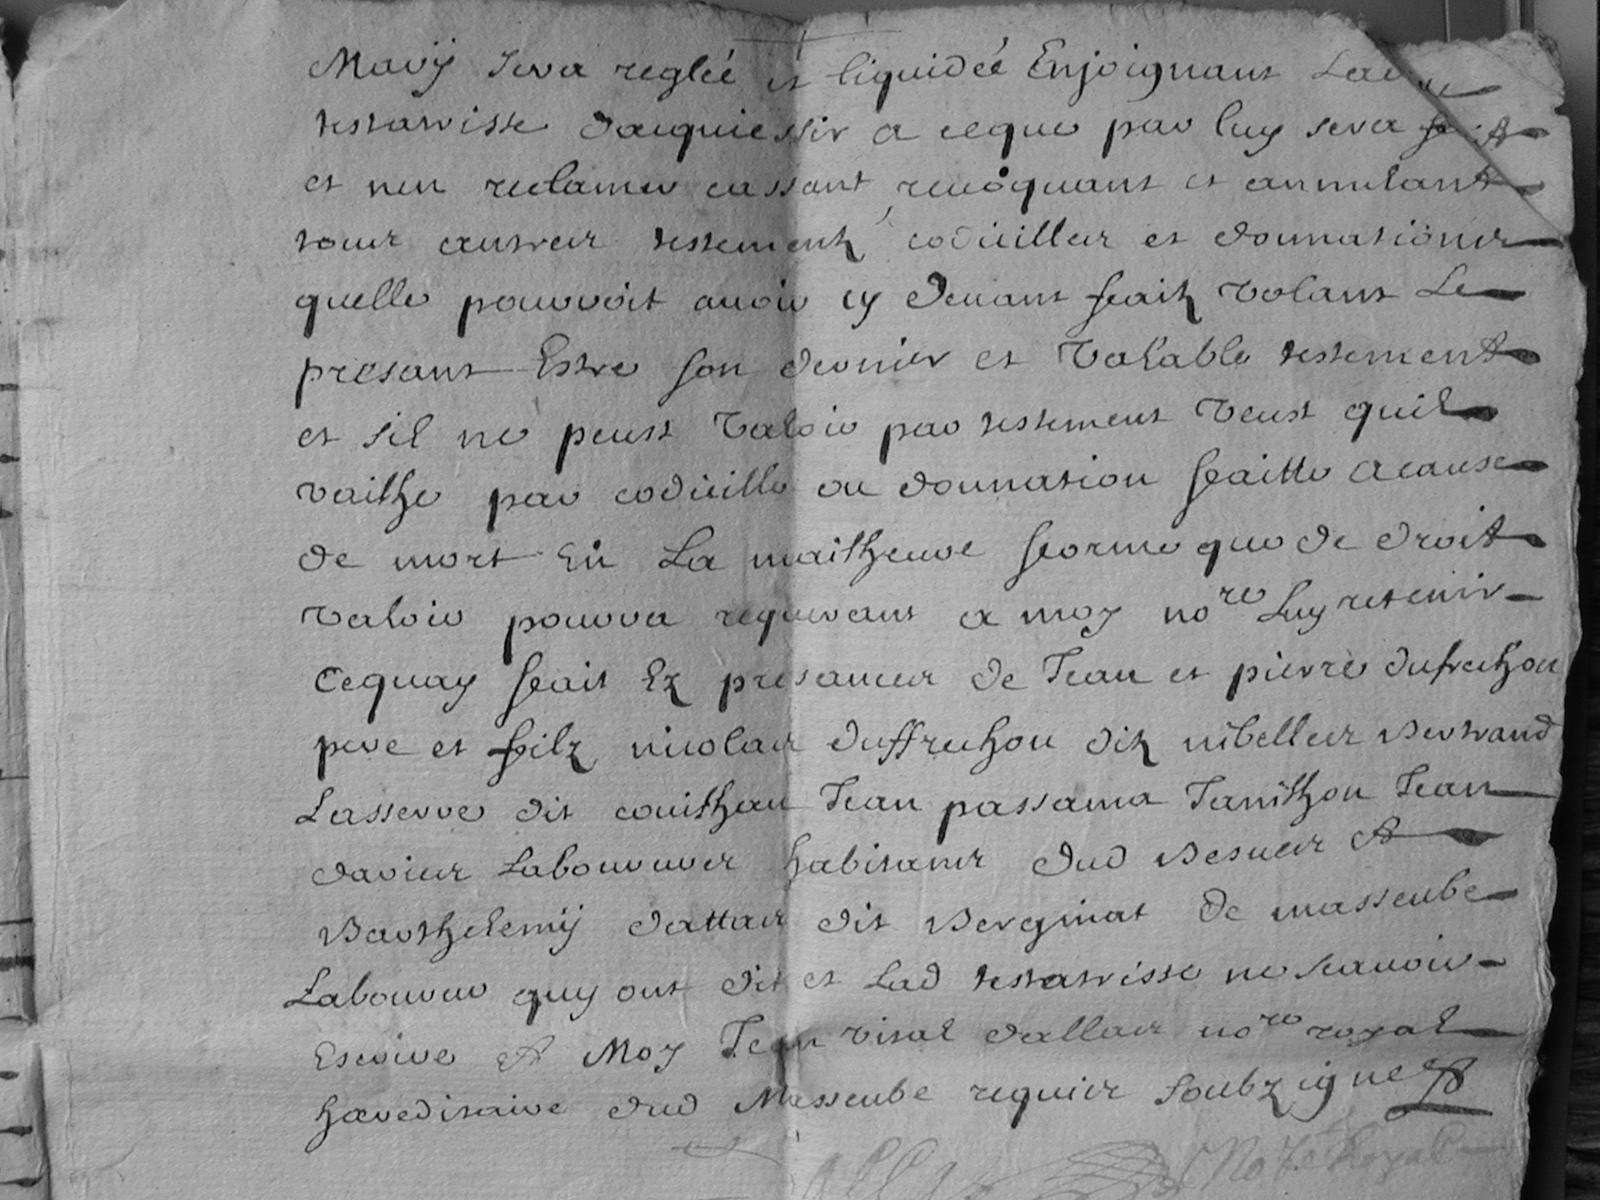 Marÿ sera reglée et liquidée Enjoignant Lad
testatrisse dacquiessir a ceque par luy sera fait
et nen reclamer cassant revoquant et annulant
tous autres testementz codicilles et donnations
quelle pouroit avoir cy devant faitz volant Le
presant Estre son dernier et valable testement
et sil ne peust valoir par testement veust quil
vailhe par codicille ou donnation faitte acause
de mort En La mailheure forme que de droit
valoir pourra requerant a moy nore Luy retenir
Cequay fait Ez presances de Jean et pierre dufrechou
pere et filz nicolas duffrechou ditz nibelles Bertrand
Lasserre dit couithau Jean passama Janithon Jean
davies Laboureurs habitans dud Besues Et
Barthelemÿ dattas dit Berginat de masseube
Laboureur quy ont dit et Lad testatrisse ne scavoir
Escrire Et Moy Jean vital dallas nore royal
haereditaire dud Masseube requis soubzigne
Nore Royal